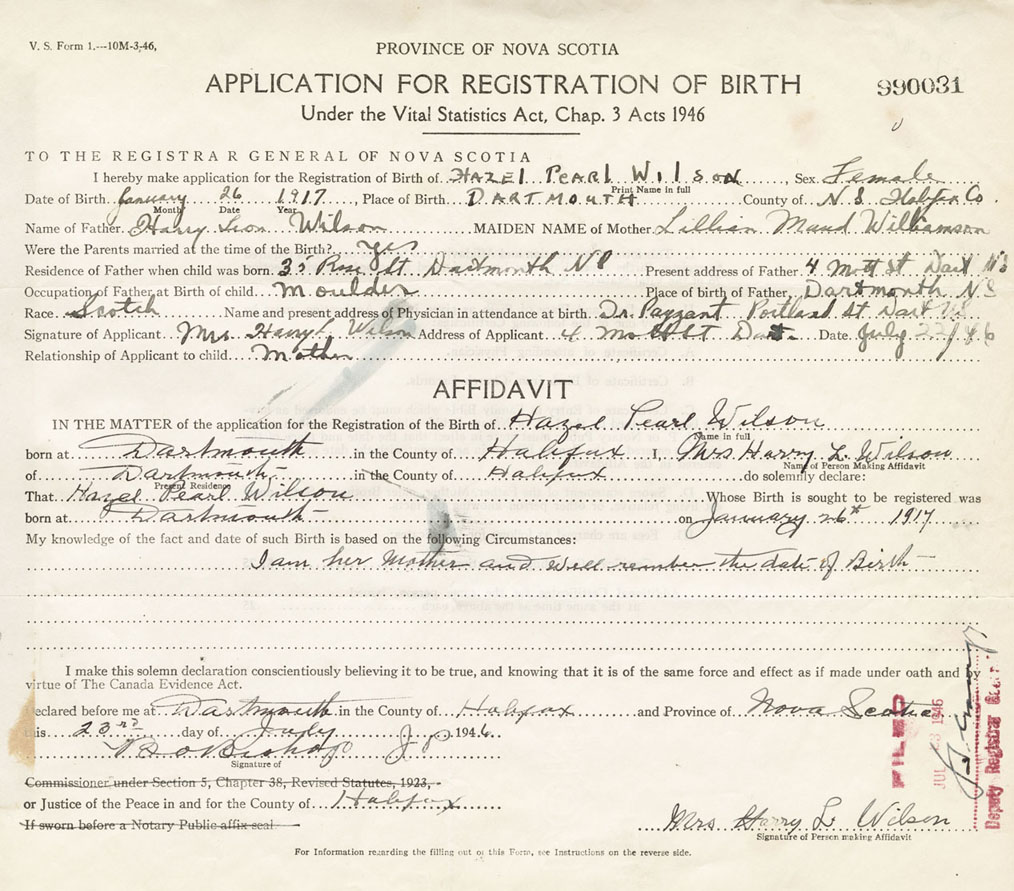 V. S. Form 1.---10M-3-46,
PROVINCE OF NOVA SCOTIA
APPLICATION FOR REGISTRATION OF BIRTH
990031
Under the Vital Statistics Act, Chap. 3 Acts 1946
TO THE REGISTRAR GENERAL OF NOVA SCOTIA
I hereby make application for the Registration of Birth of HAZEl PEARl WIlSON, Sex Female
Print Name in full
Date of Birth January 26 1917, Place of Birth DARTMOUTH County of N.S Halifax Co.
Month Date Year
Name of Father Harry Leon Wilson MAIDEN NAME of Mother Lillian Maud Williamson
Were the Parents married at the time of the Birth? Yes
Residence of Father when child was born 35 Rose St Dartmouth NS Present address of Father 4 Mott St Dart N.S
Occupation of Father at Birth of child Moulder Place of birth of Father Dartmouth N.S
Race Scotch Name and present address of Physician in attendance at birth. Dr. Payzant Portland St Dart N.S
Signature of Applicant Mrs. Harry L Wilson Address of Applicant 4 Mott St Dart. Date July 22/46
Relationship of Applicant to child Mother
AFFIDAVIT
IN THE MATTER of the application for the Registration of the Birth of Hazel Pearl Wilson
Name in full
born at Dartmouth in the County of Halifax I, Mrs Harry L. Wilson
Name of Person Making Affidavit
of Dartmouth in the County of Halifax do solemnly declare:
Present Residence
That Hazel Pearl Wilson Whose Birth is sought to be registered was
born at Dartmouth on January 26th 1917
My knowledge of the fact and date of such Birth is based on the following Circumstances:
I am her Mother and well remember the date of Birth
I make this solemn declaration conscientiously believing it to be true, and knowing that it is of the same force and effect as if made under oath and by
virtue of The Canada Evidence Act.
Declared before me at Dartmouth in the County of Halifax and Province of Nova Scotia
this 23rd day of July 1946
Bishop J.P.
Signature of
Commissioner under Section 5, Chapter 38, Revised Statutes, 1923,
or Justice of the Peace in and for the County of Halifax
If sworn before a Notary Public affix seal
Mrs Harry L. Wilson
Signature of Person making Affidavit
For Information regarding the filling out of this Form, see Instructions on the reverse side.
FILED
JUL 23 1946
Deputy Registrar